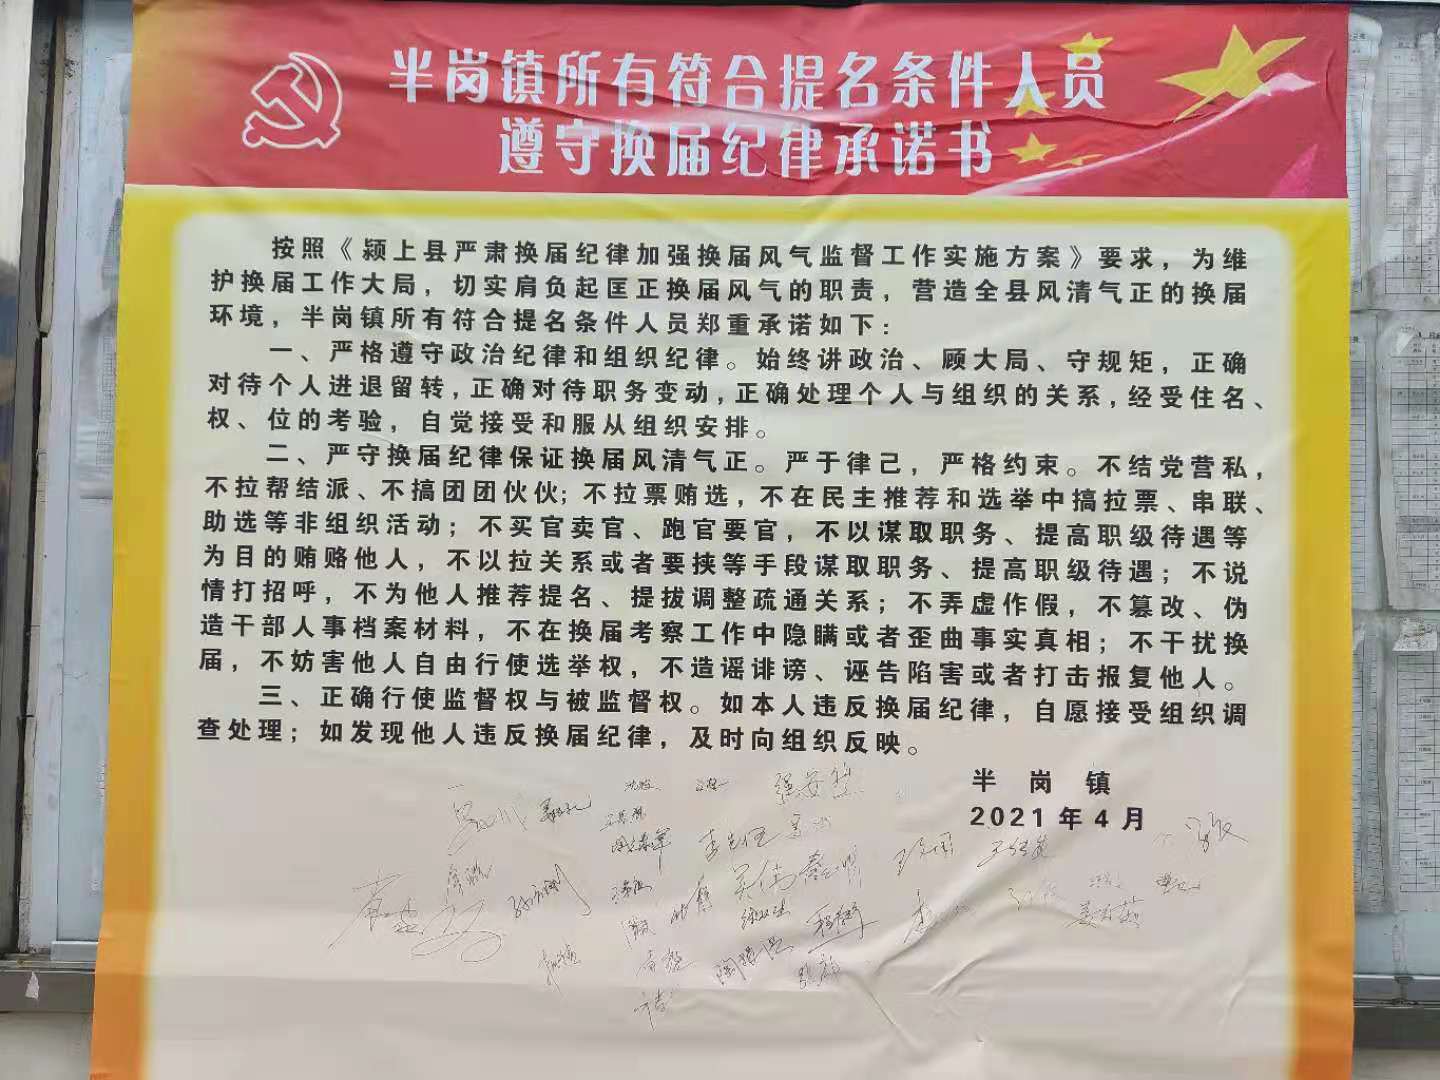 半岗镇所有符合提名条件人员
遵守换届纪律承诺书
按照《颍上县严肃换届纪律加强换届风气监督工作实施方案》要求，为维
护换届工作大局，切实肩负起匡正换届风气的职责，营造全县风清气正的换届
环境，半岗镇所有符合提名条件人员郑重承诺如下：
一、严格遵守政治纪律和组织纪律。始终讲政治、顾大局、守规矩，正确
对待个人进退留转，正确对待职务变动，正确处理个人与组织的关系，经受住名、
权、位的考验，自觉接受和服从组织安排。
二、严守换届纪律保证换届风清气正。严于律己，严格约束。不结党营私，
不拉帮结派、不搞团团伙伙；不拉票贿选，不在民主推荐和选举中搞拉票、串联、
助选等非组织活动；不买官卖官、跑官要官，不以谋取职务、提高职级待遇等
为目的贿赂他人，不以拉关系或者要挟等手段谋取职务、提高职级待遇；不说
情打招呼，不为他人推荐提名、提拔调整疏通关系；不弄虚作假，不篡改、伪
造干部人事档案材料，不在换届考察工作中隐瞒或者歪曲事实真相；不干扰换
届，不妨害他人自由行使选举权，不造谣诽谤、诬告陷害或者打击报复他人。
三、正确行使监督权与被监督权。如本人违反换届纪律，自愿接受组织调
查处理；如发现他人违反换届纪律，及时向组织反映。
半岗镇
2021年4月